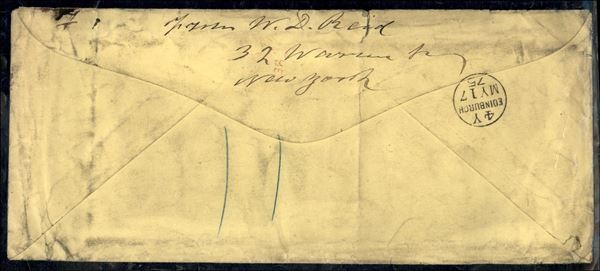 From W. D. Reid
32 Warren St
New York
4 Y
EDINBURGH
MY 17
75